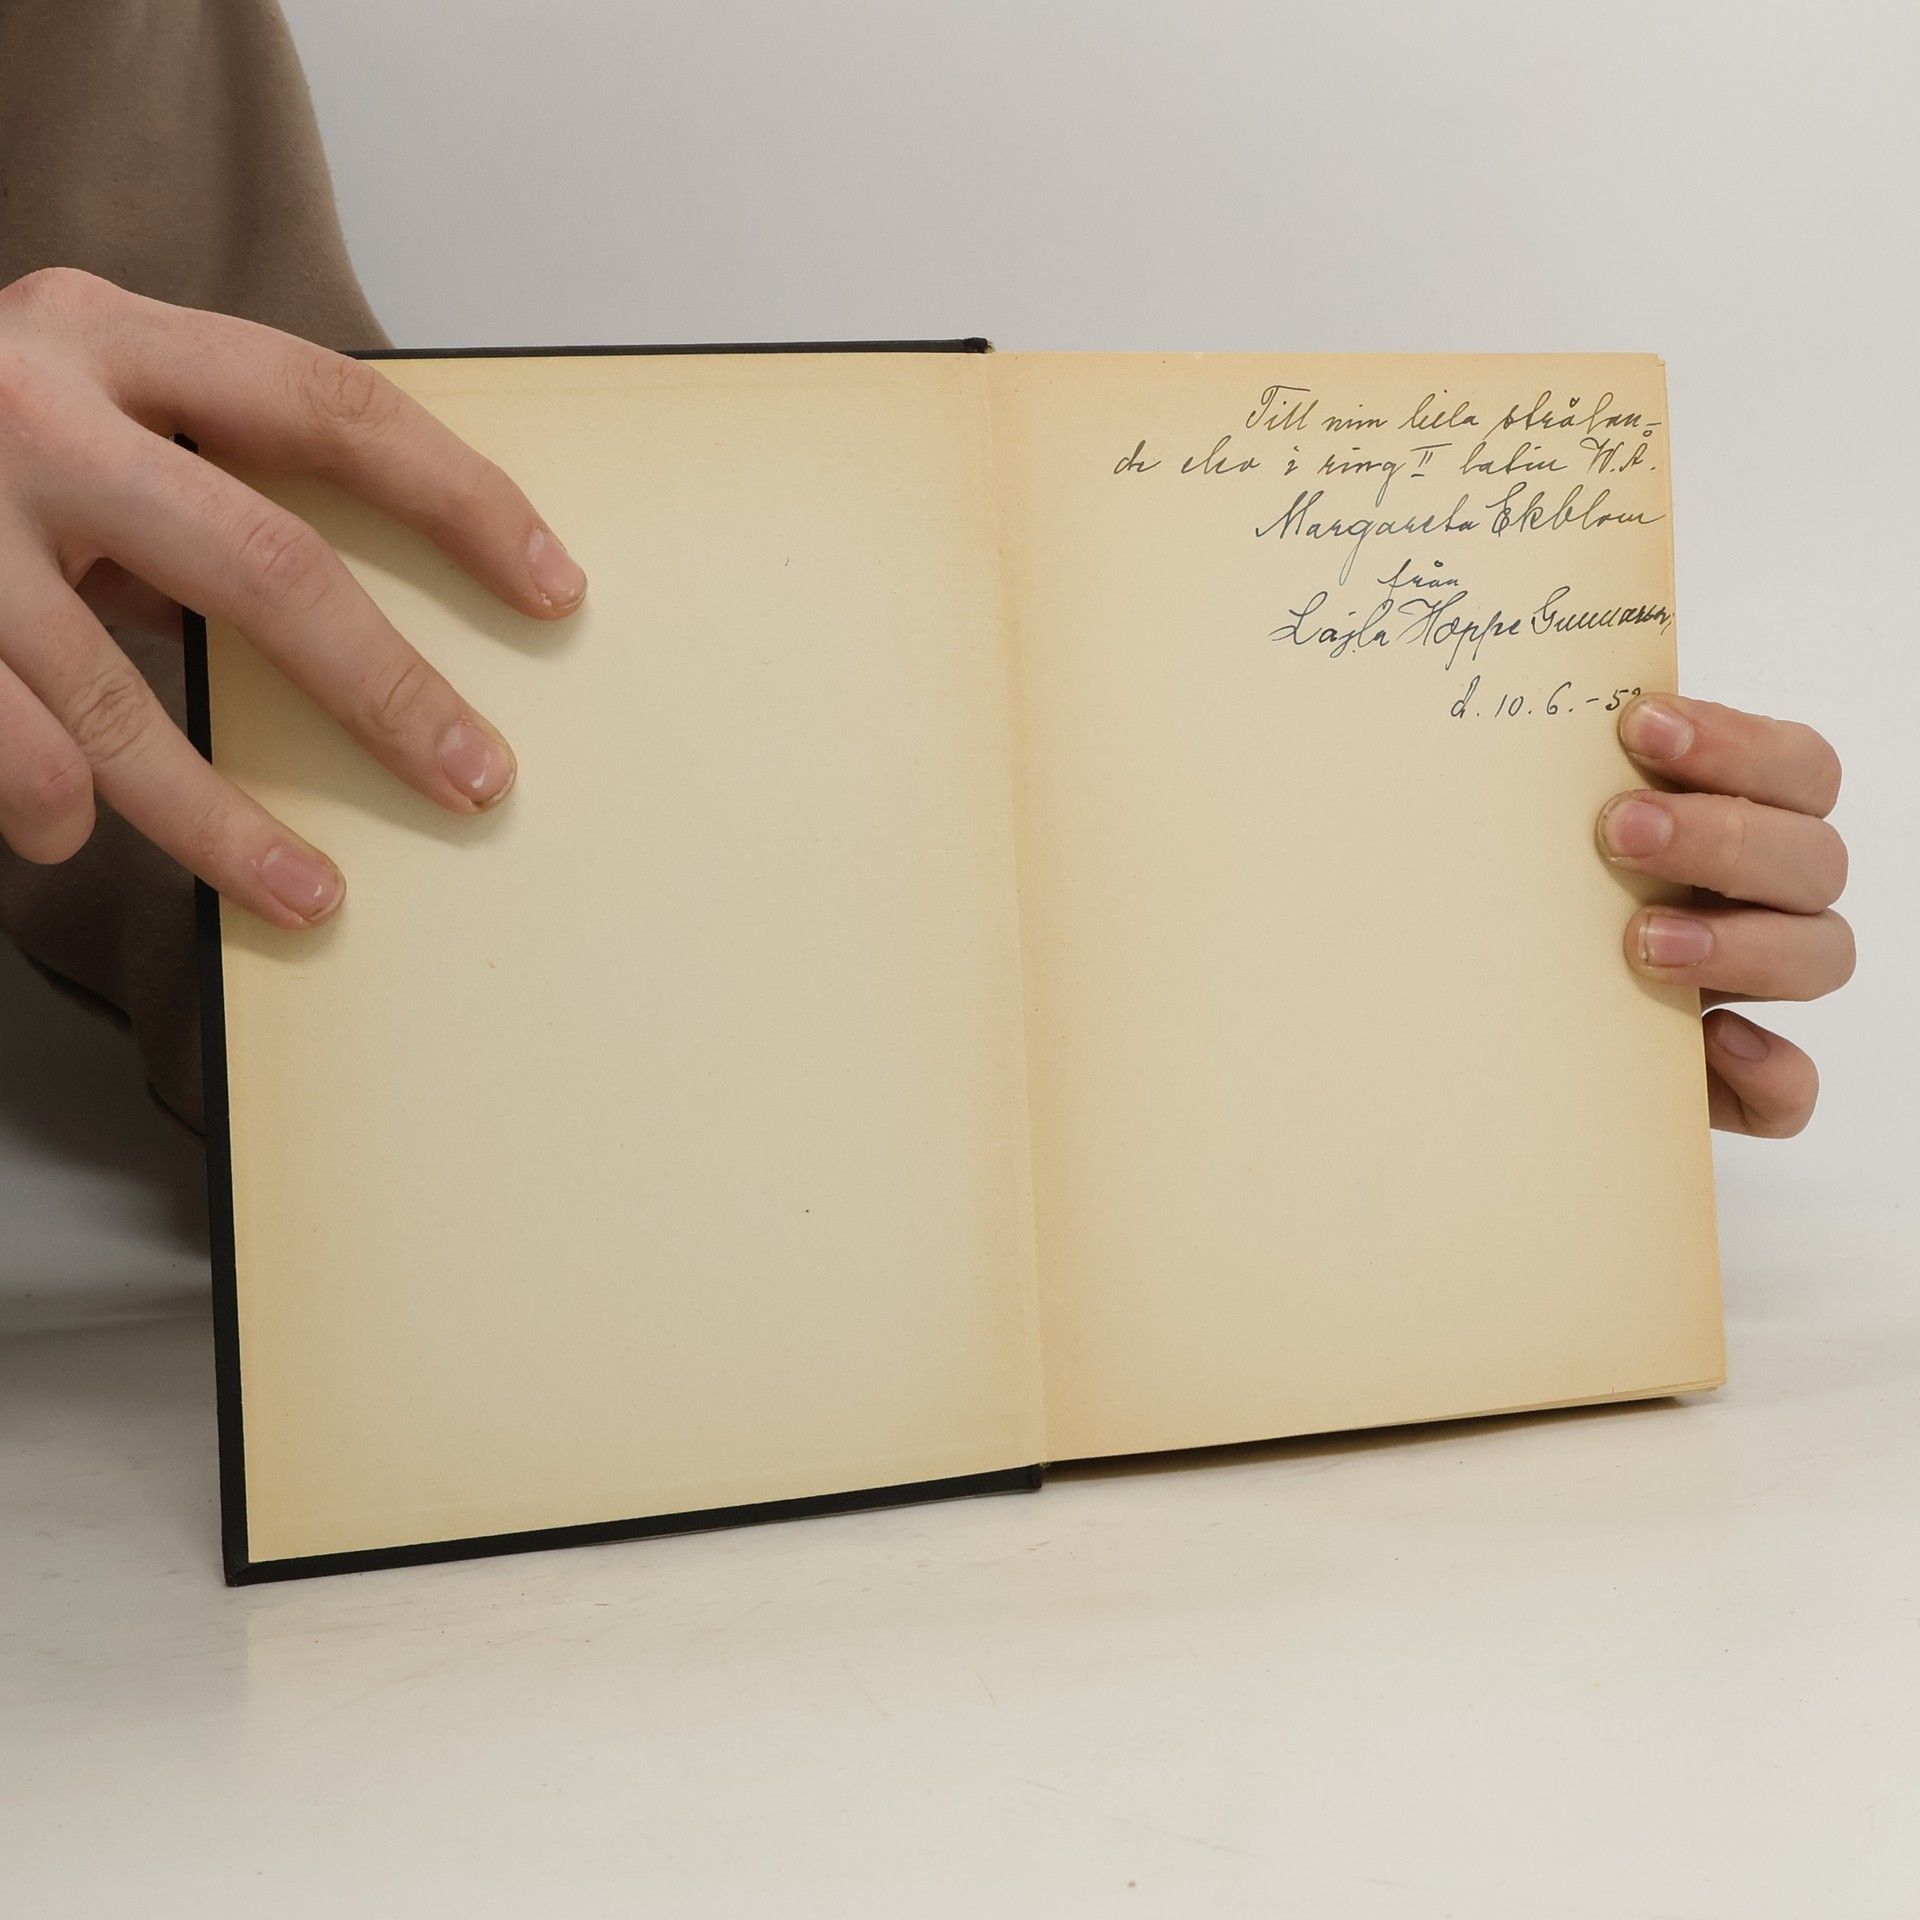 Till min lilla strålan-
de elev i ring II latin W.Å.
Margareta Ekblom
från
Lajla Hoppe Gunnarson,
d. 10. 6. - 5